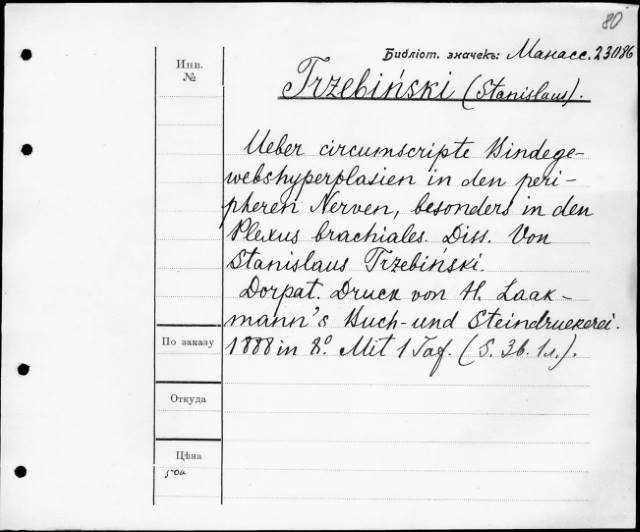 80
Библіот. значекъ: Манасс. 23086
Инв.
№
Trzebiński (Stanislaus).
Ueber circumscripte Bindege-
webshyperplasien in den peri-
pheren Nerven, besonders in den
Plexus brachiales. Diss. Von
Stanislaus Trzebiński.
Dorpat. Druck von H. Laak-
mann's Buch- und Steindruckerei.
1888 in 8º. Mit 1 Taf. (S. 36. 1 л.).
По заказу
Откуда
Цѣна